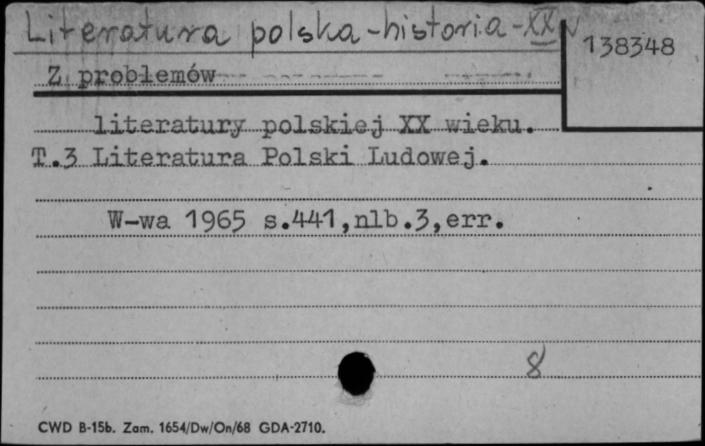 Literatura polska-historia-XX w
138348
Z problemów
literatury polskiej XX wieku.
T.3 Literatura Polski Ludowej.
W-wa 1965 s.441,nlb.3,err.
8
CWD B-15b. Zam. 1654/Dw/On/68 GDA-2710.